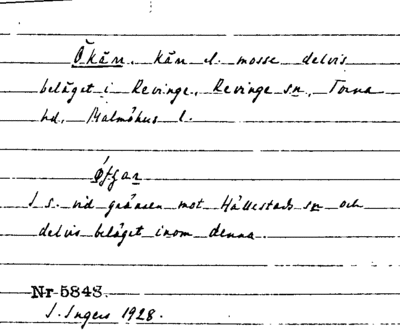 Ökän, kän l. mosse delvis
beläget i Revinge, Revinge sn, Torna
hd, Malmöhus l.
I s. vid gränsen mot Hällestads sn och
delvis beläget inom denna.
Nr 5848.
I. Ingers 1928.